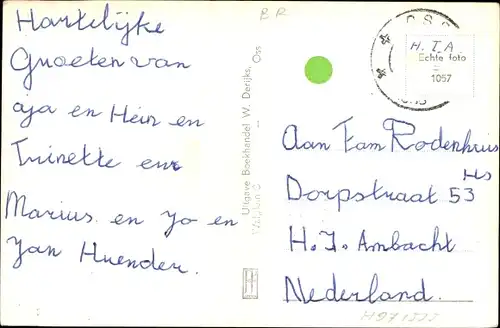 Hartelijke
Groeten van
aja en Hein en
Trinette en
Marius en Jo en
Jan Huender.
BR
Uitgave Boekhandel W. Derijks, Oss
OSS
H.T.A.
Echte foto
=
1057
Aan Fam Rodenhuis
Dorpstraat 53 Hs
H. I. Ambacht
Nederland.